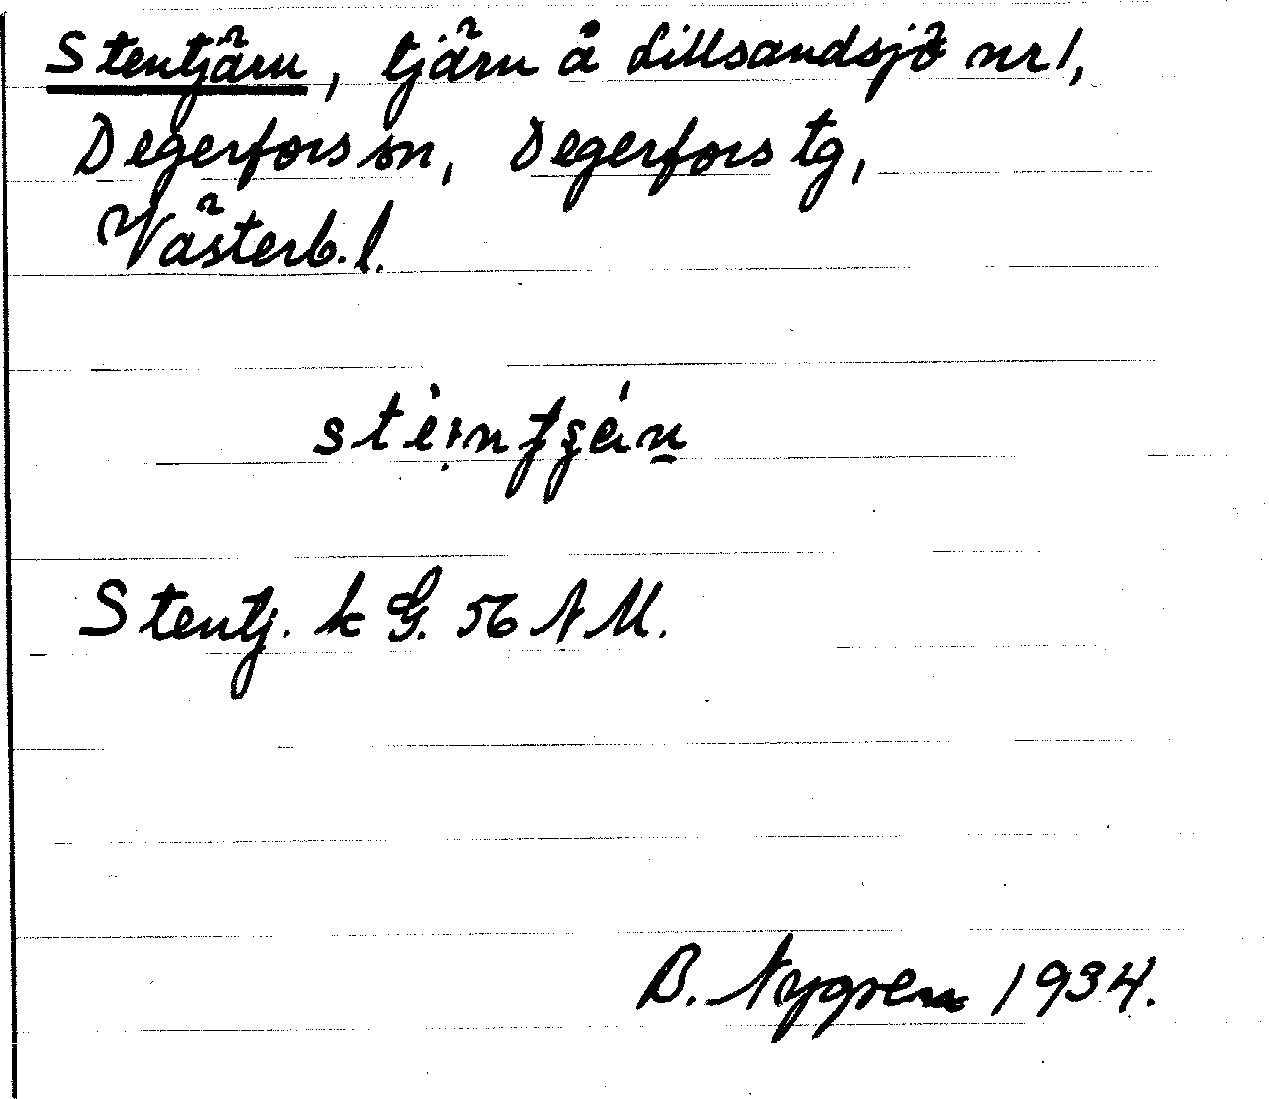 Stentjärn, tjärn å Lillsandsjö nr 1,
Degerfors sn, Degerfors tg,
Västerb. l.
Stentj. k G. 56 N M.
B. Nygren 1934.